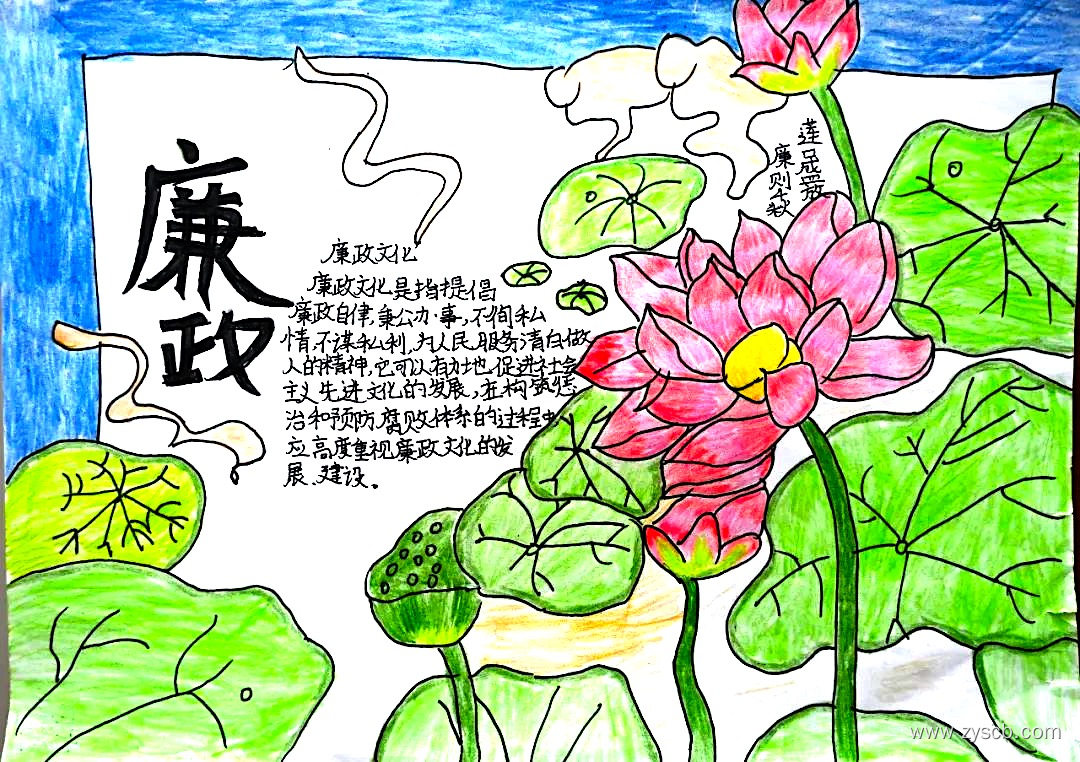 廉政
廉政文化
廉政文化是指提倡
廉政自律,秉公办事,不徇私
情,不谋私利,为人民服务清白做
人的精神,它可以有力地促进社会
主义先进文化的发展,在构筑惩
治和预防腐败体系的过程中
应高度重视廉政文化的发
展、建设。
莲 放
廉则千秋
www.zyscb.com